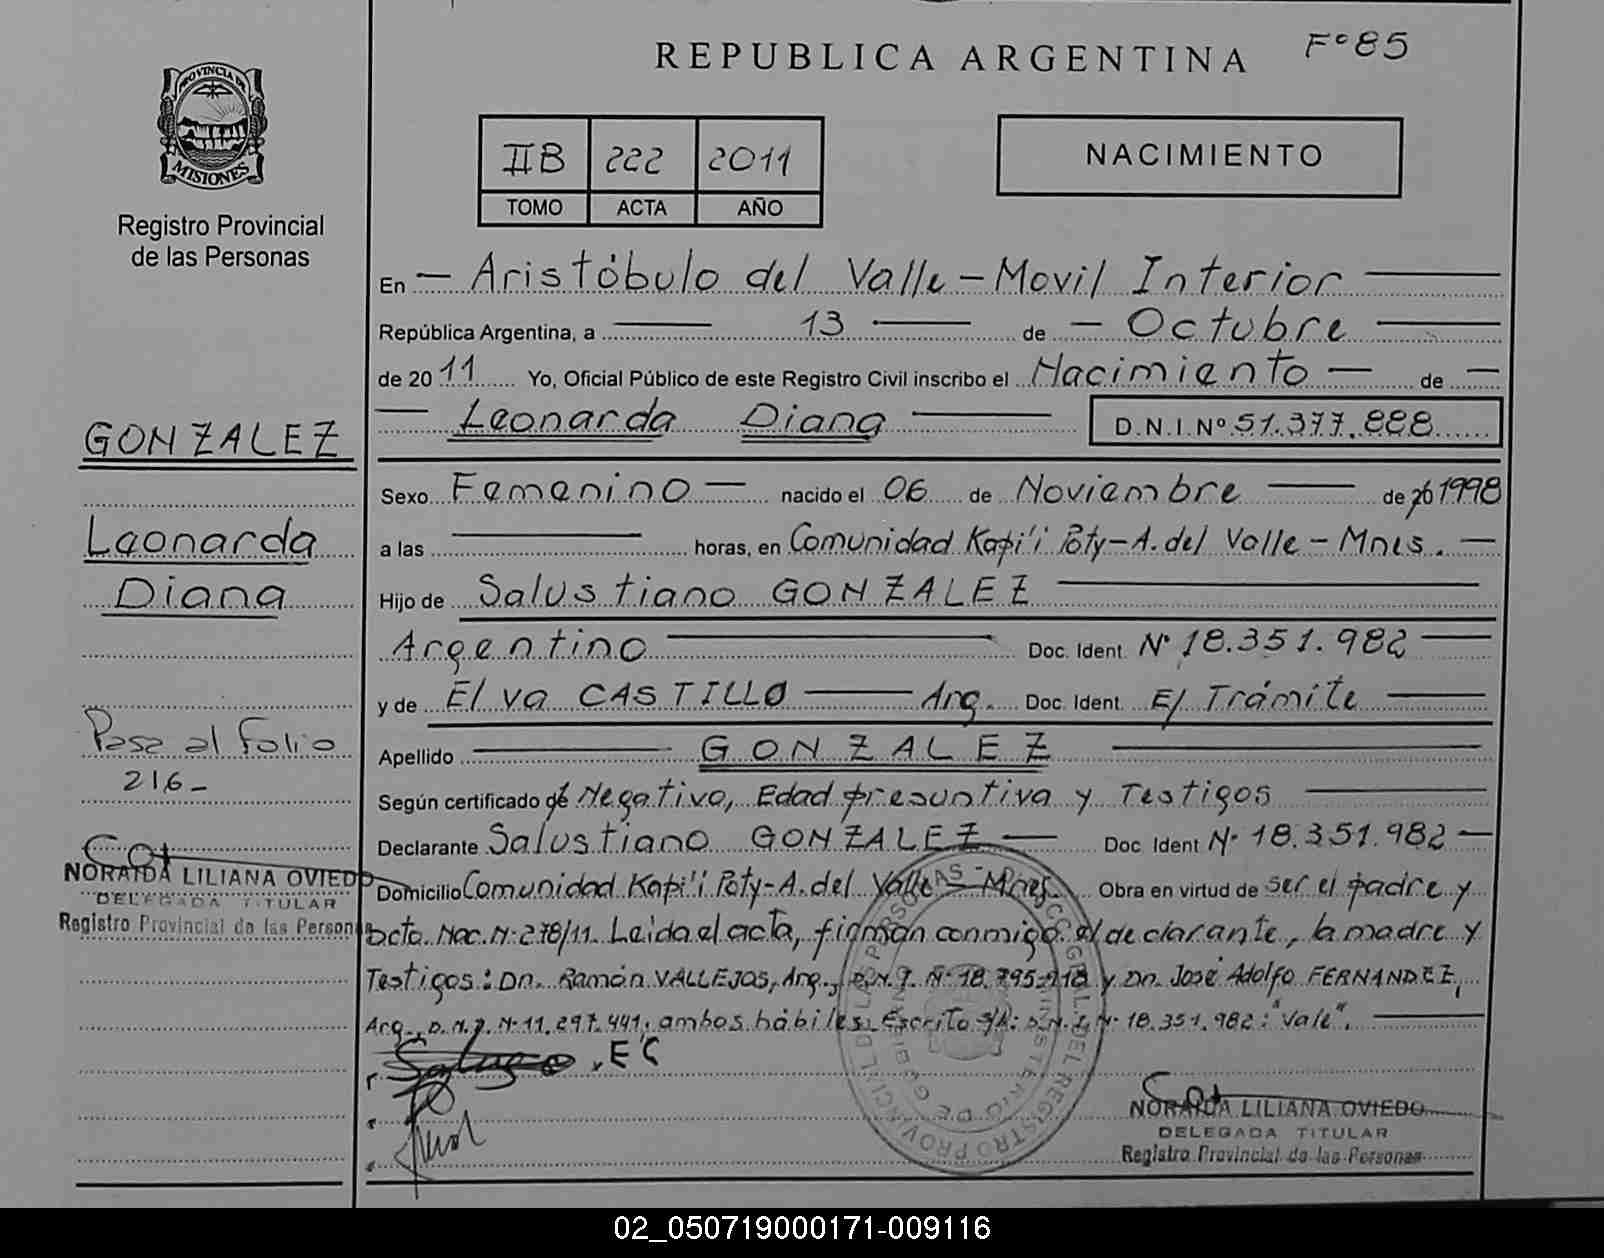 REPUBLICA ARGENTINA
Fº 85
PROVINCIA DE
MISIONES
Registro Provincial
de las Personas
IIB 222 2011
TOMO ACTA AÑO
NACIMIENTO
En — Aristóbulo del Valle - Movil Interior
República Argentina, a 13 de — Octubre
de 20 11 Yo, Oficial Público de este Registro Civil inscribo el Nacimiento — de —
Leonarda Diana D.N.I.Nº 51.377.888
GONZALEZ
Leonarda
Diana
Pasa al Folio
216-
NORAIDA LILIANA OVIEDO
DELEGADA TITULAR
Registro Provincial de las Personas
Sexo Femenino — nacido el 06 de Noviembre — de 20 1998
a las — horas, en Comunidad Kapi'i Poty - A. del Valle - Mnes. —
Hijo de Salustiano GONZALEZ
Argentino Doc. Ident. Nº 18.351.982
y de Elva CASTILLO — Arg. Doc. Ident. E/ Trámite —
Apellido GONZALEZ
Según certificado de Negativo, Edad presuntiva y Testigos
Declarante Salustiano GONZALEZ — Doc. Ident Nº 18.351.982 —
Domicilio Comunidad Kapi'i Poty - A. del Valle - Mnes. Obra en virtud de ser el padre y
acta. Nac. Nº 278/11. Leida el acta, firman conmigo el declarante, la madre y
Testigos: Dn. Ramón VALLEJOS, Arg., D.N.I. Nº 18.795.918 y Dn. José Adolfo FERNANDEZ,
Arg., D.N.I. Nº 11.297.441, ambos hábiles. Escrito S/R: D.N.I. Nº 18.351.982: "Vale".
E C
NORAIDA LILIANA OVIEDO
DELEGADA TITULAR
Registro Provincial de las Personas
02_050719000171-009116